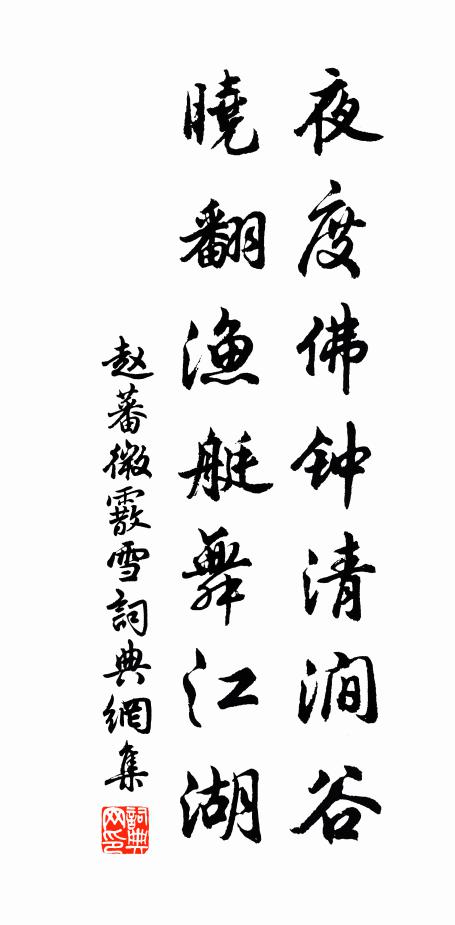 夜度佛钟清涧谷
晓翻渔艇舞江湖
赵蕃微霰雪詞典網集
詞典网印